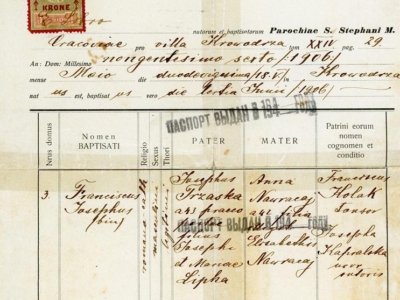 KRONE
natorum et baptisatorum Parochiae S. Stephani M.
Cracoviae pro villa Krowodrza tom XXIV pag. 29
An: Dom: Millesimo nongentesimo sexto (1906)
mense Maio duodevigesima (18.V) in Krowodrza
nat us est, baptisat us vero die tertia Junii (1906)
ПАСПОРТ ВЫДАН В 194 ГОДУ
Nrus domus
Nomen
BAPTISATI
Religio
Sexus
Thori
PATER
MATER
Patrini eorum
nomen
cognomen et
conditio
3.
Franciscus
Josephus
(bin.)
romano cath.
masculinus
legitimus
Josephus
Trzaska
filius
Josephi
et Mariae
Lipka
Anna
Nawracaj
filia
Elisabethae
Nawracaj
Franciscus
Holak
Josepha
ПАСПОРТ ВЫДАН В 194 ГОДУ